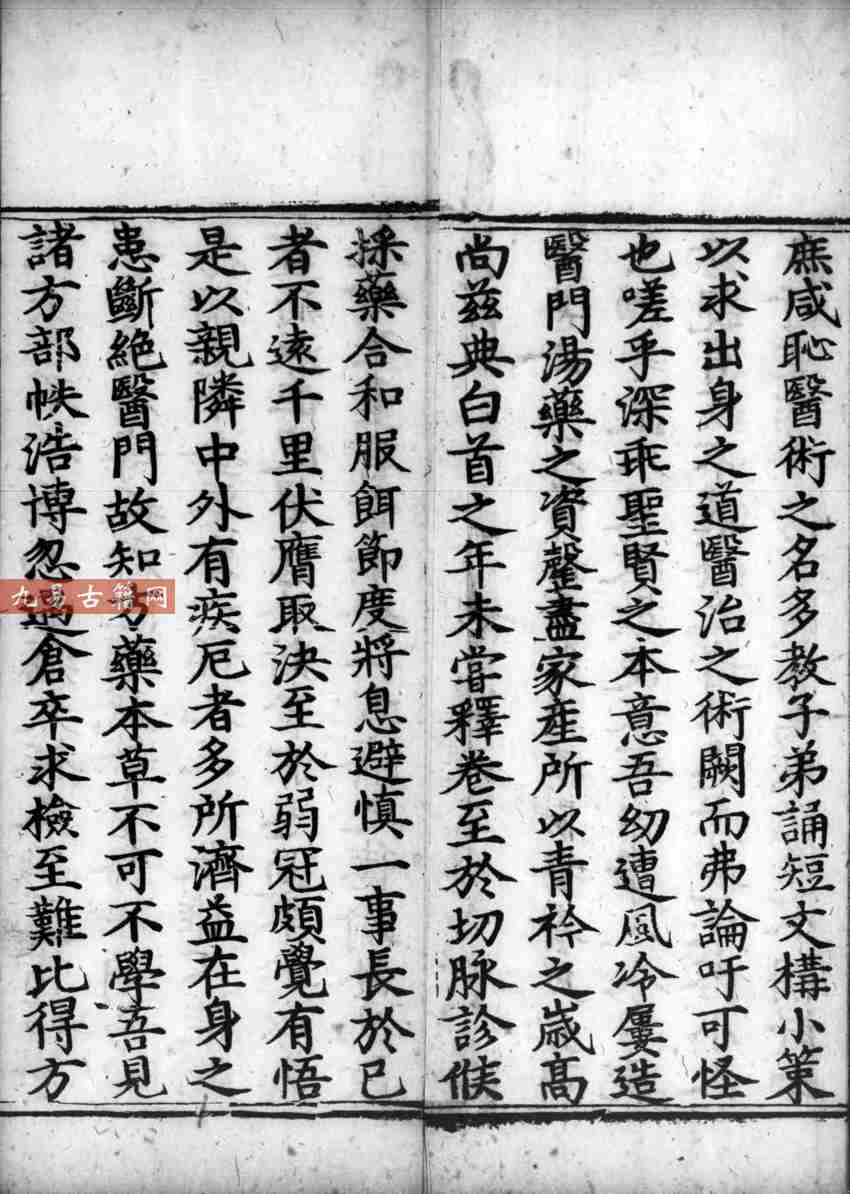 庶咸恥醫術之名多教子弟誦短文構小策
以求出身之道醫治之術闕而弗論吁可怪
也嗟乎深乖聖賢之本意吾幼遭風冷屢造
醫門湯藥之資罄盡家産所以青衿之歲高
尚兹典白首之年未嘗釋卷至於切脉診候
採藥合和服餌節度將息避慎一事長於已
者不遠千里伏膺取決至於弱冠頗覺有悟
是以親隣中外有疾厄者多所濟益在身之
患斷絶醫門故知方藥本草不可不學吾見
諸方部帙浩博忽遇倉卒求檢至難比得方
九易古籍网